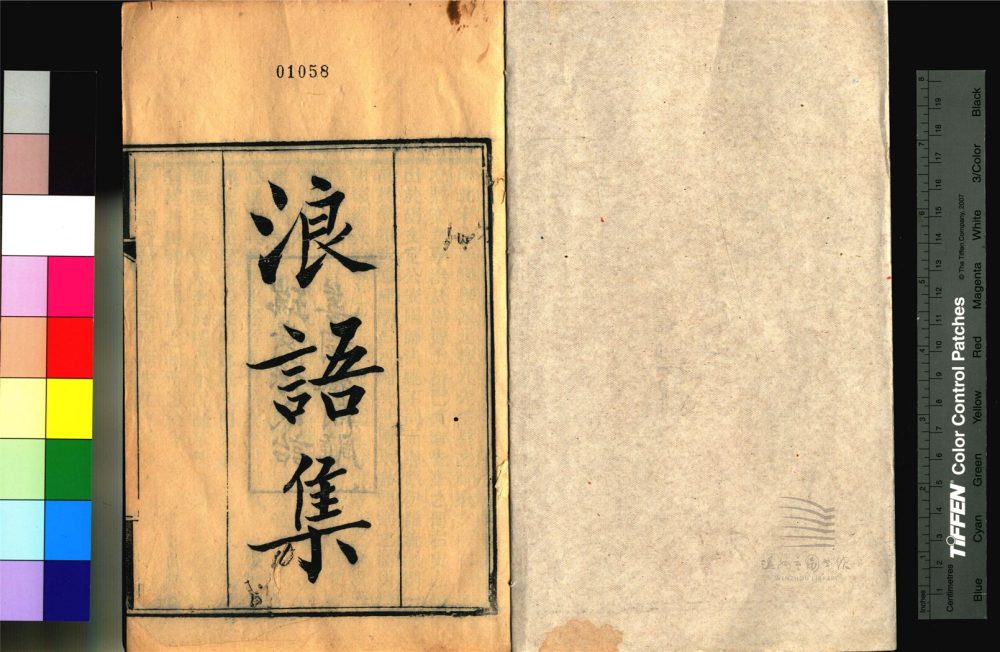 01058
浪語集
溫州市圖書館
WENZHOU LIBRARY
TIFFEN Color Control Patches
© The Tiffen Company, 2007
Blue Cyan Green Yellow Red Magenta White 3/Color Black
Inches 1 2 3 4 5 6 7 8
Centimetres 1 2 3 4 5 6 7 8 9 10 11 12 13 14 15 16 17 18 19